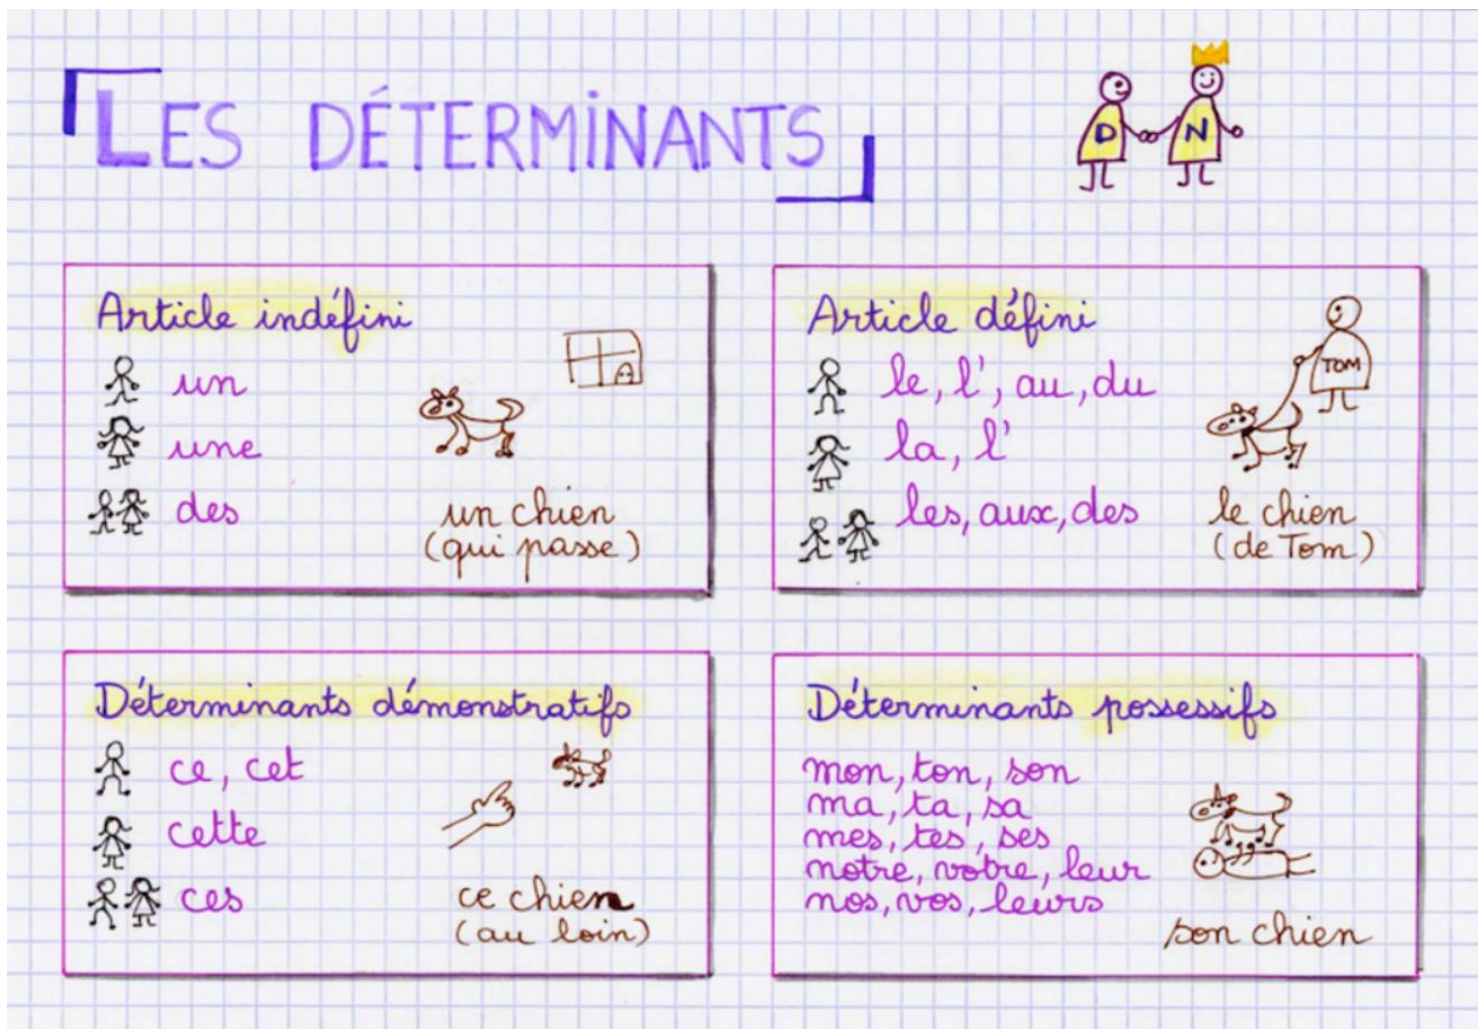 LES DÉTERMINANTS
D N
Article indéfini
un
une
des
un chien
(qui passe)
Article défini
le, l', au, du
la, l'
les, aux, des
TOM
le chien
(de Tom)
Déterminants démonstratifs
ce, cet
cette
ces
ce chien
(au loin)
Déterminants possessifs
mon, ton, son
ma, ta, sa
mes, tes, ses
notre, votre, leur
nos, vos, leurs
son chien